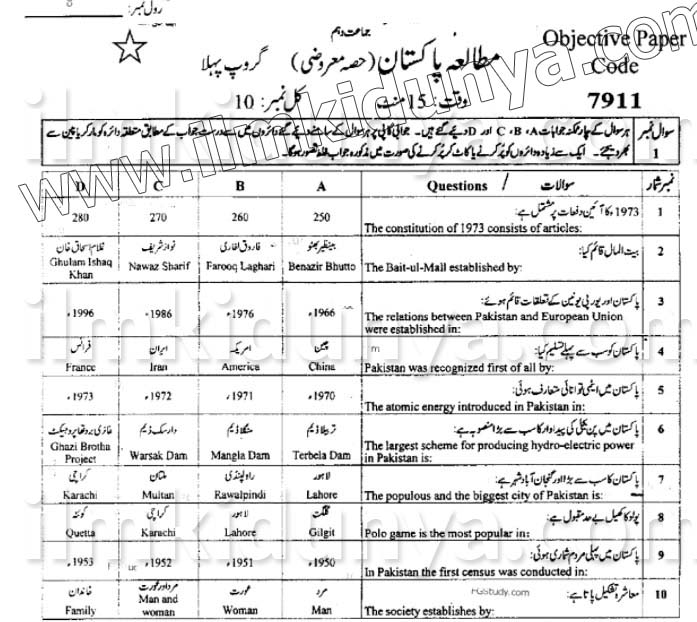 رول نمبر:
جماعت دہم
Objective Paper
Code
7911
مطالعہ پاکستان (حصہ معروضی) گروپ پہلا
وقت: 15 منٹ کل نمبر: 10
www.ilmkidunya.com
سوال نمبر 1
ہر سوال کے چار ممکنہ جوابات A، B، C اور D دیئے گئے ہیں۔ جوابی کاپی پر ہر سوال کے سامنے دیئے گئے دائروں میں سے درست جواب کے مطابق متعلقہ دائرہ کو مارکر یا پین سے
بھر دیجئے۔ ایک سے زیادہ دائروں کو پُر کرنے یا کاٹ کر پُر کرنے کی صورت میں مذکورہ جواب غلط تصور ہوگا۔
D C B A Questions / سوالات نمبر شمار
280 270 260 250 1973ء کا آئین دفعات پر مشتمل ہے: 1
The constitution of 1973 consists of articles:
غلام اسحاق خان نواز شریف فاروق لغاری بینظیر بھٹو بیت المال قائم کیا: 2
Ghulam Ishaq Khan Nawaz Sharif Farooq Laghari Benazir Bhutto The Bait-ul-Mall established by:
پاکستان اور یورپی یونین کے تعلقات قائم ہوئے: 3
1996ء 1986ء 1976ء 1966ء The relations between Pakistan and European Union
were established in:
فرانس ایران امریکہ چین پاکستان کو سب سے پہلے تسلیم کیا: 4
France Iran America China Pakistan was recognized first of all by:
1973ء 1972ء 1971ء 1970ء پاکستان میں ایٹمی توانائی متعارف ہوئی: 5
The atomic energy introduced in Pakistan in:
غازی بروتھا پروجیکٹ وارسک ڈیم منگلا ڈیم تربیلا ڈیم پاکستان میں پن بجلی کی پیداوار کا سب سے بڑا منصوبہ ہے: 6
Ghazi Brotha Project Warsak Dam Mangla Dam Terbela Dam The largest scheme for producing hydro-electric power
in Pakistan is:
کراچی ملتان راولپنڈی لاہور پاکستان کا سب سے بڑا اور گنجان آباد شہر ہے: 7
Karachi Multan Rawalpindi Lahore The populous and the biggest city of Pakistan is:
کوئٹہ کراچی لاہور گلگت پولو کا کھیل بے حد مقبول ہے: 8
Quetta Karachi Lahore Gilgit Polo game is the most popular in:
1953ء 1952ء 1951ء 1950ء پاکستان میں پہلی مردم شماری ہوئی: 9
In Pakistan the first census was conducted in:
خاندان مرد اور عورت عورت مرد معاشرہ تشکیل پاتا ہے: 10
FGStudy.com
Family Man and woman Woman Man The society establishes by: